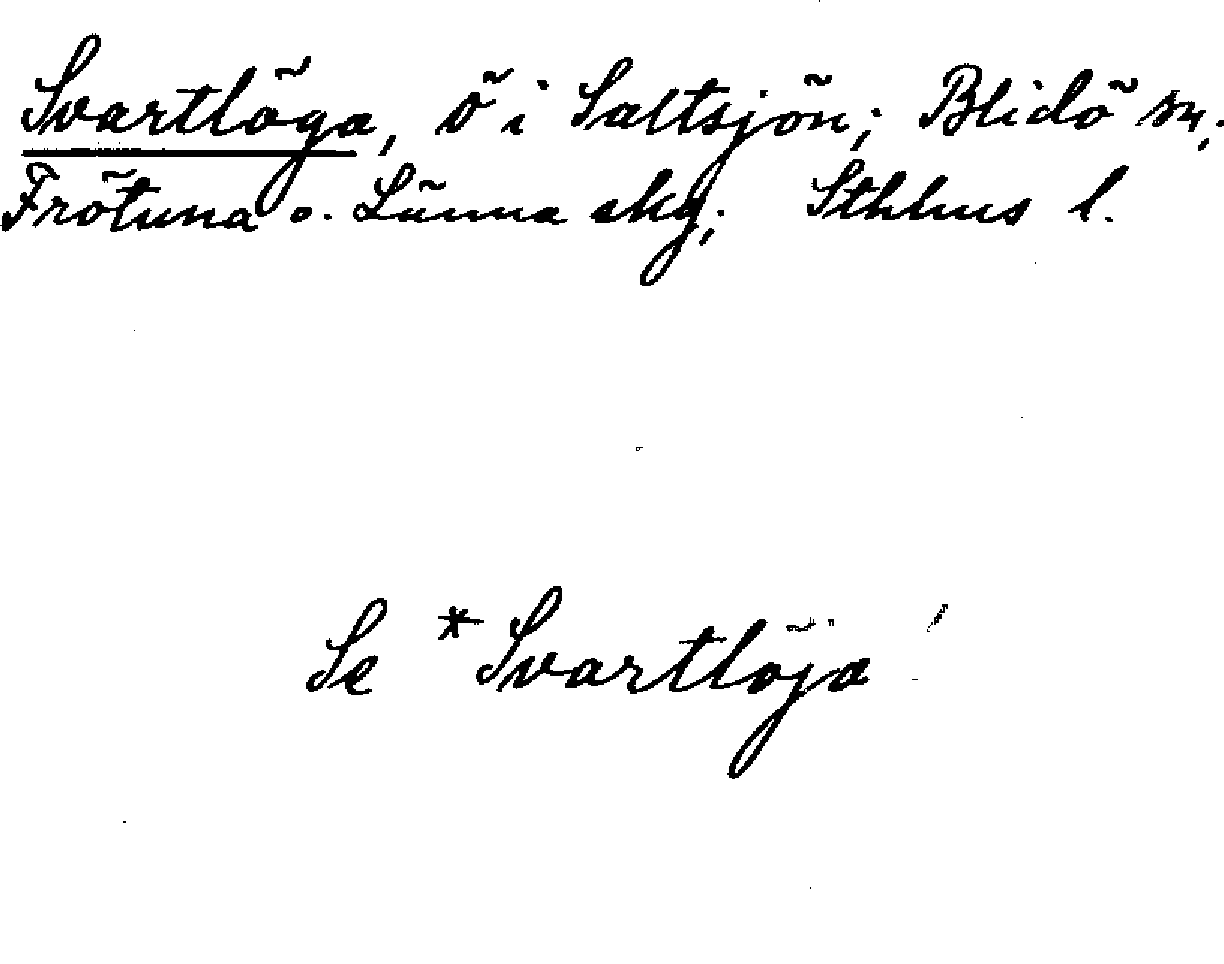 Svartlöga, ö i Saltsjön; Blidö sn;
Frötuna o. Länna skg; Sthlms l.
Se *Svartlöja!